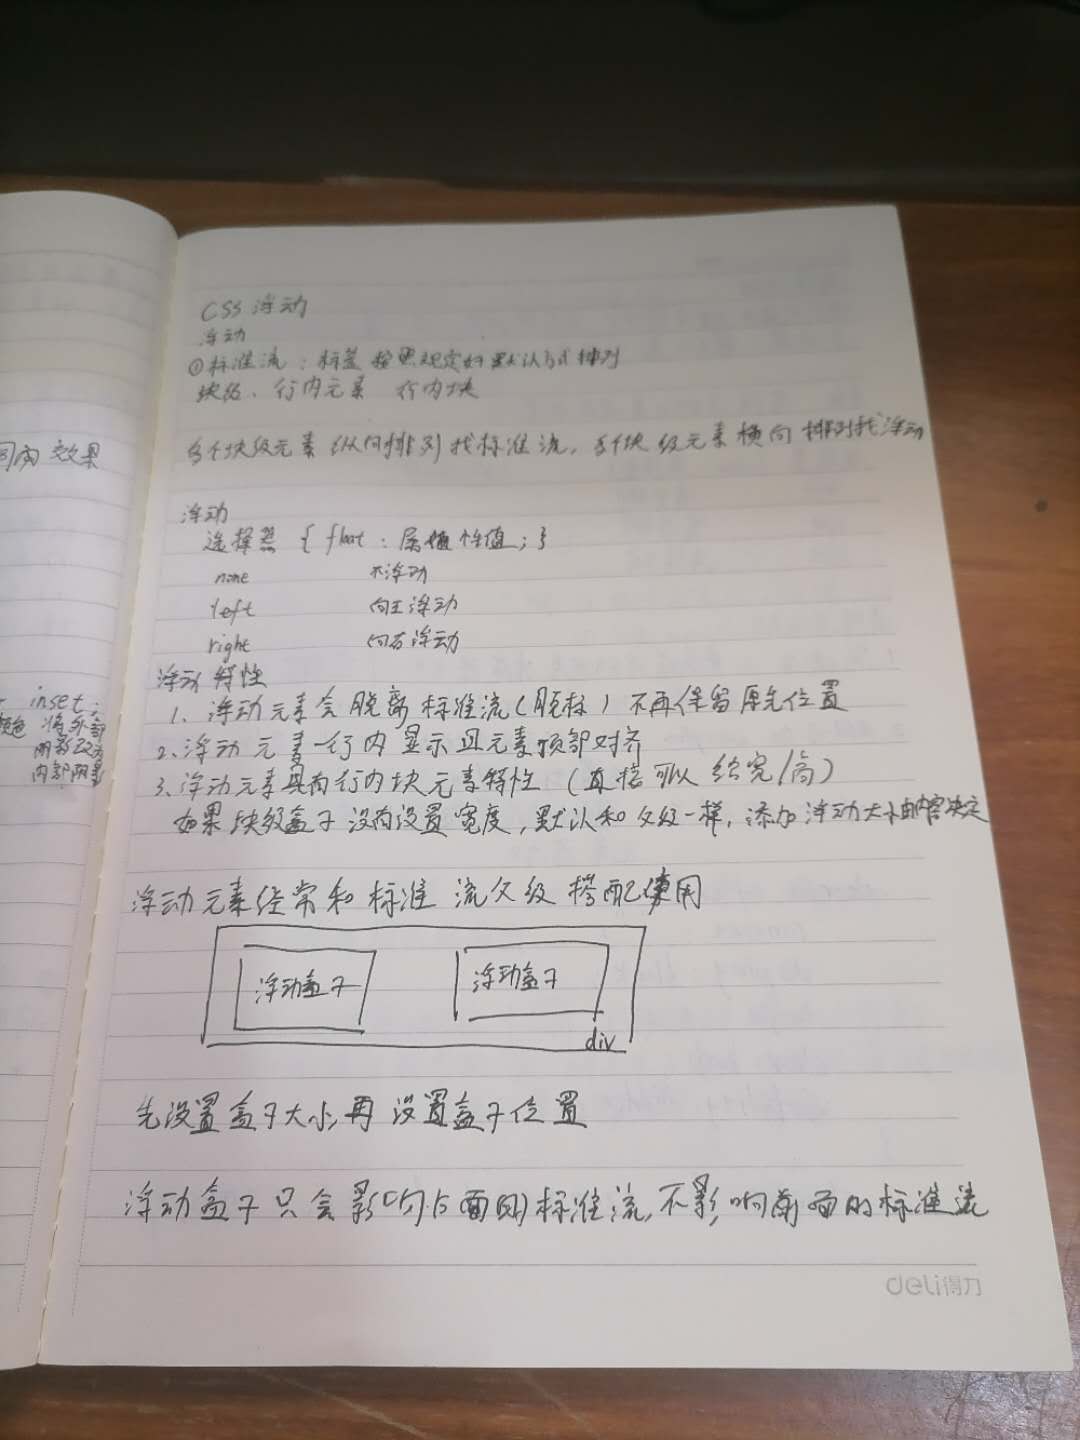 CSS 浮动
浮动
①标准流：标签按照规定好默认方式排列
块级、行内元素 行内块
多个块级元素纵向排列找标准流，多个块级元素横向排列找浮动
浮动
选择器 { float：属性值；}
none 不浮动
left 向左浮动
right 向右浮动
浮动特性
1、浮动元素会脱离标准流（脱标）不再保留原先位置
2、浮动元素一行内显示且元素顶部对齐
3、浮动元素具有行内块元素特性（直接可以给宽/高）
如果块级盒子没有设置宽度，默认和父级一样，添加浮动大小由内容决定
浮动元素经常和标准流父级搭配使用
浮动盒子 浮动盒子
div
先设置盒子大小，再设置盒子位置
浮动盒子只会影响后面的标准流，不影响前面的标准流
deli得力
效果
inset；
颜色 将外部
阴影改为
内部阴影